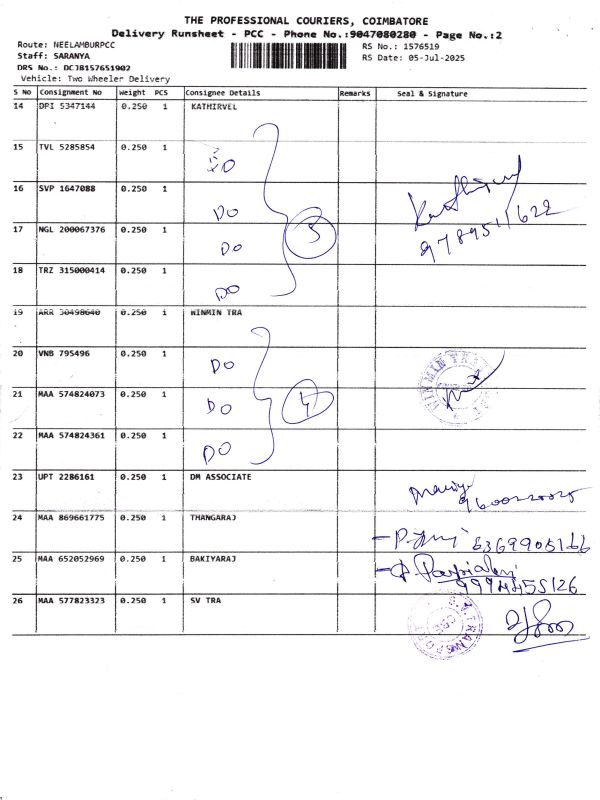 THE PROFESSIONAL COURIERS, COIMBATORE
Delivery Runsheet - PCC - Phone No.:9047080280 - Page No.:2
Route: NEELAMBURPCC
RS No.: 1576519
Staff: SARANYA
RS Date: 05-Jul-2025
DRS No.: DCJB157651902
Vehicle: Two Wheeler Delivery
S No Consignment No Weight PCS Consignee Details Remarks Seal & Signature
14 DPI 5347144 0.250 1 KATHIRVEL
15 TVL 5285854 0.250 1 DO
16 SVP 1647088 0.250 1 DO
17 NGL 200067376 0.250 1 DO
5
9789511622
18 TRZ 315000414 0.250 1 DO
19 ARR 30498640 0.250 1 WINMIN TRA
20 VNB 795496 0.250 1 DO
WINMIN TRA
21 MAA 574824073 0.250 1 DO
4
22 MAA 574824361 0.250 1 DO
23 UPT 2286161 0.250 1 DM ASSOCIATE
24 MAA 869661775 0.250 1 THANGARAJ
6369905166
25 MAA 652052969 0.250 1 BAKIYARAJ
9994455126
26 MAA 577823323 0.250 1 SV TRA